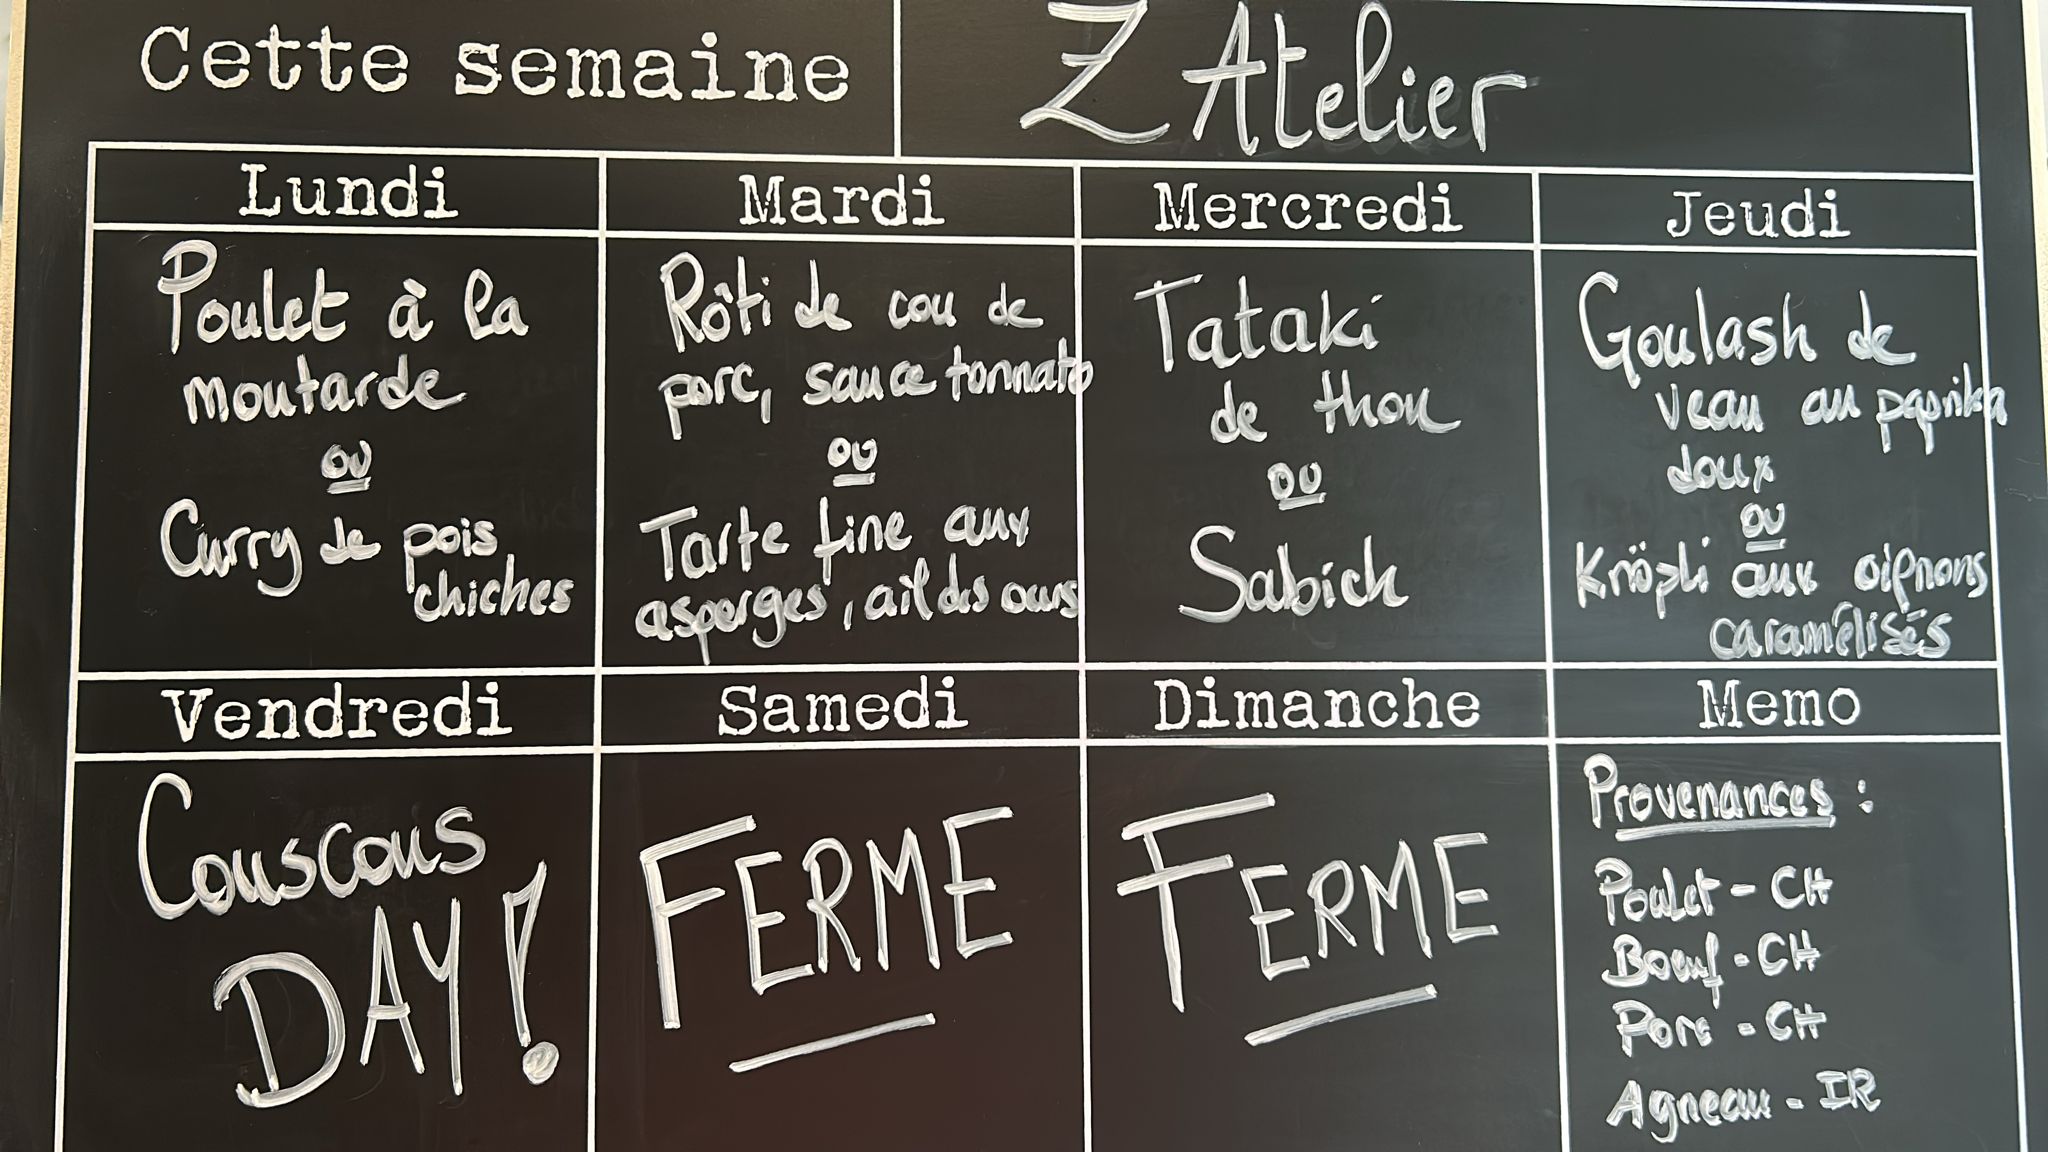 Cette semaine
Z Atelier
Lundi
Poulet à la
moutarde
ou
Curry de pois
chiches
Mardi
Rôti de cou de
porc, sauce tonnato
ou
Tarte fine aux
asperges, ail des ours
Mercredi
Tataki
de thon
ou
Sabich
Jeudi
Goulash de
veau au paprika
doux
ou
Knöpli aux oignons
caramélisés
Vendredi
Couscous
DAY!
Samedi
FERME
Dimanche
FERME
Memo
Provenances :
Poulet - CH
Boeuf - CH
Porc - CH
Agneau - IR